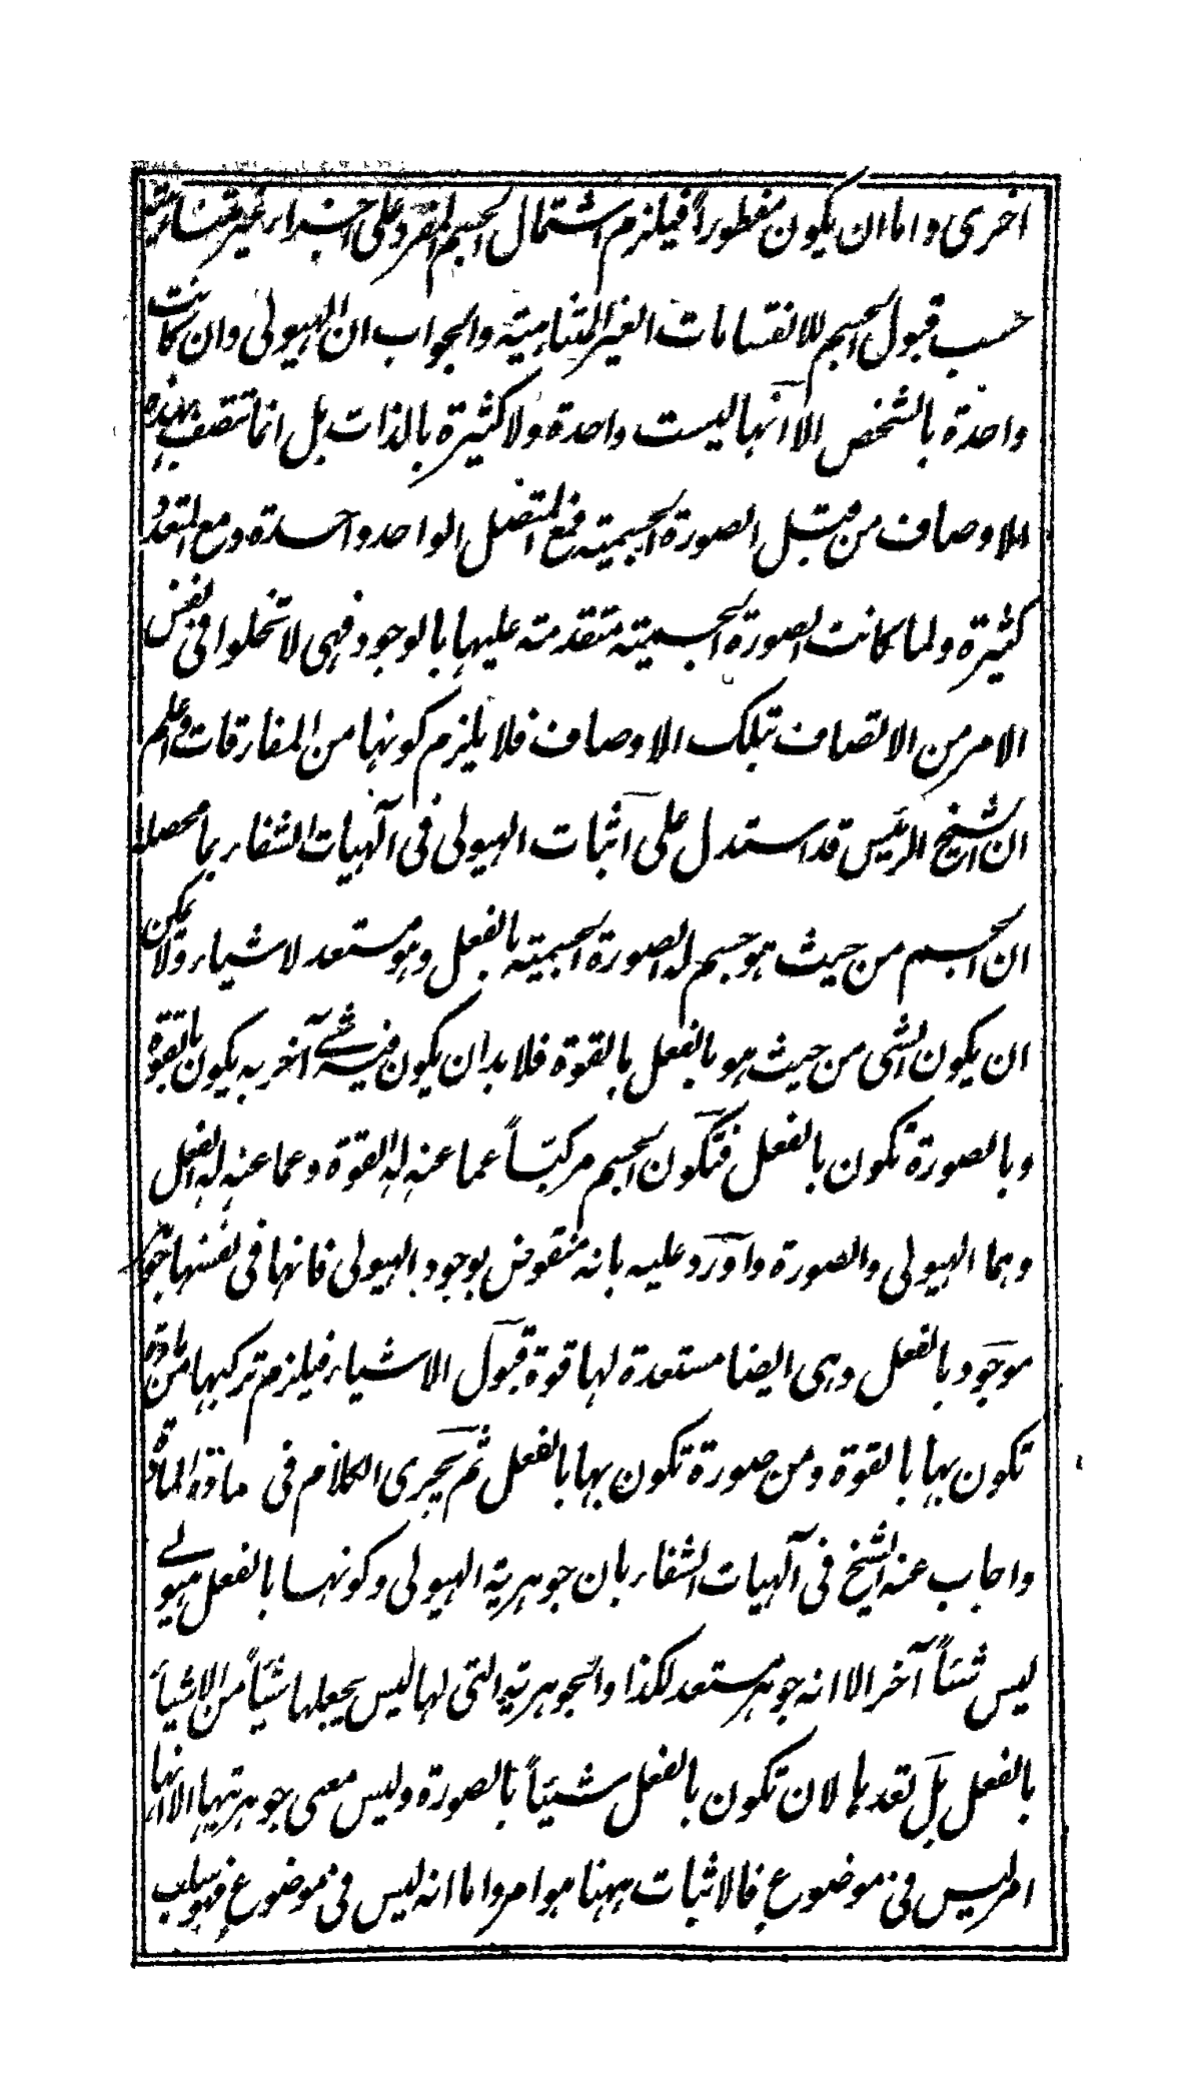 اخرى واما ان يكون مفطوراً فيلزم اشتمال الجسم المفرد على اجزاء غير متناهية
حسب قبول الجسم للانقسامات الغير المتناهية والجواب ان الهيولى وان كانت
واحدة بالشخص الا انها ليست واحدة ولا كثيرة بالذات بل انما تتصف بهذه
الاوصاف من قبل الصورة الجسمية فمع المتصل الواحد واحدة ومع المتعدد
كثيرة ولما كانت الصورة الجسمية متقدمة عليها بالوجود فهى لا تخلوا فى نفس
الامر من الاتصاف بتلك الاوصاف فلا يلزم كونها من المفارقات واعلم
ان الشيخ الرئيس قد استدل على اثبات الهيولى فى آلهيات الشفاء بما محصله
ان الجسم من حيث هو جسم له الصورة الجسمية بالفعل وهو مستعد لاشياء ولا يمكن
ان يكون الشى من حيث هو بالفعل بالقوة فلا بد ان يكون فيه شئ آخر به يكون بالقوة
وبالصورة تكون بالفعل فتكون الجسم مركباً عما عنه له القوة وعما عنه له الفعل
وهما الهيولى والصورة واورد عليه بانه منقوض بوجود الهيولى فانها فى نفسها جوهر
موجود بالفعل وهى ايضا مستعدة لها قوة قبول الاشياء فيلزم تركبها من مادة
تكون بها بالقوة ومن صورة تكون بها بالفعل ثم يجرى الكلام فى مادة المادة
واجاب عنه الشيخ فى آلهيات الشفاء بان جوهرية الهيولى وكونها بالفعل هيولے
ليس شئاً آخر الا انه جوهر مستعد لكذا والجوهرية التى لها ليس يجعلها شيئاً من الاشياء
بالفعل بل تعدها لان تكون بالفعل شيئاً بالصورة وليس معنى جوهريتها الا انها
امر ليس فى موضوع فالاثبات ههنا هو امر واما انه ليس فى موضوع فهو سلب